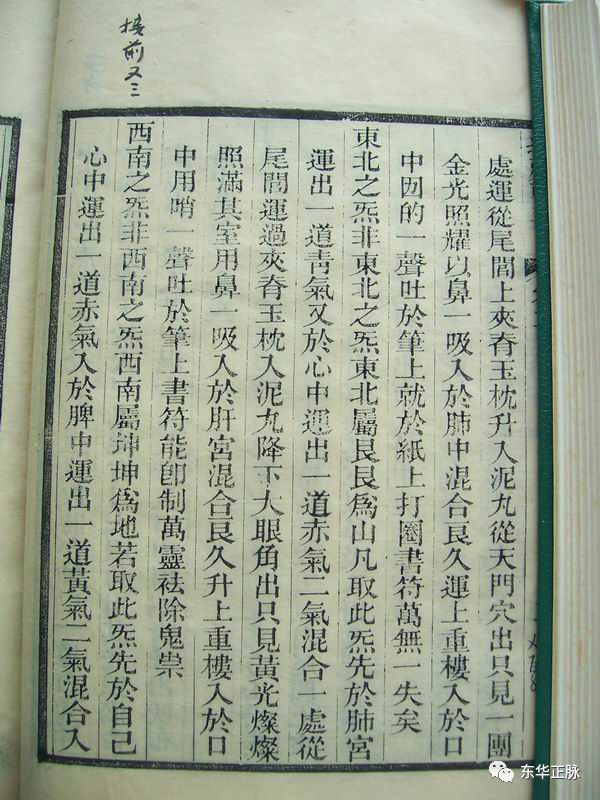 接前又三
處運從尾閭上夾脊玉枕升入泥丸從天門穴出只見一團
金光照耀以鼻一吸入於肺中混合良久運上重樓入於口
中囫的一聲吐於筆上就於紙上打圈書符萬無一失矣
東北之炁非東北之炁東北屬艮艮爲山凡取此炁先於肺宮
運出一道靑氣又於心中運出一道赤氣二氣混合一處從
尾閭運過夾脊玉枕入泥丸降下大眼角出只見黃光燦燦
照滿其室用鼻一吸入於肝宮混合良久升上重樓入於口
中用哨一聲吐於筆上書符能卽制萬靈祛除鬼祟
西南之炁非西南之炁西南屬坤坤爲地若取此炁先於自己
心中運出一道赤氣入於脾中運出一道黃氣二氣混合入
东华正脉